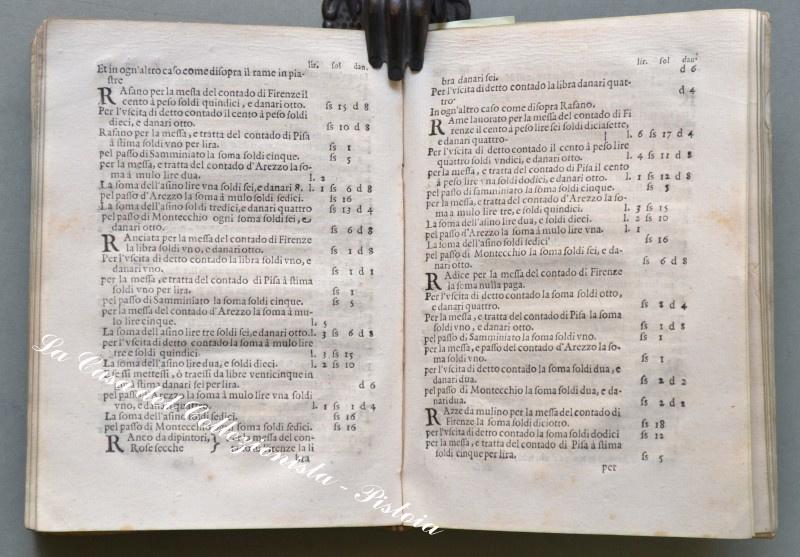 lir. sol dan.
Et in ogn'altro caso come disopra il rame in pia-
stre
RAsano per la messa del contado di Firenze il
cento à peso soldi quindici, e danari otto. ss 15 d 8
Per l'vscita di detto contado il cento à peso soldi
dieci, e danari otto. ss 10 d 8
Rasano per la messa, e tratta del contado di Pisa
à stima soldi vno per lira. ss 1
pel passo di Samminiato la soma soldi cinque. ss 5
per la messa, e tratta del contado d'Arezzo la so-
ma à mulo lire dua. l. 2
La soma dell'asino lire vna soldi sei, e danari 8. l. 1 ss 6 d 8
pel passo d'Arezzo la soma à mulo soldi sedici. ss 16
La soma dell'asino soldi tredici, e danari quattro ss 13 d 4
pel passo di Montecchio ogni soma soldi sei, e
danari otto. ss 6 d 8
RAnciata per la messa del contado di Firenze
la libra soldi vno, e danari otto. ss 1 d 8
Per l'vscita di detto contado la libra soldi vno, e
danari vno. ss 1 d 1
per la messa, e tratta del contado di Pisa à stima
soldi vno per lira. ss 1
pel passo di Samminiato la soma soldi cinque. ss 5
per la messa del contado d'Arezzo la soma à mu-
lo lire cinque. l. 5
La soma dell'asino lire tre soldi sei, e danari otto. l. 3 ss 6 d 8
per l'vscita di detto contado la soma à mulo lire
tre e soldi quindici. l. 3 ss 15
La soma dell'asino lire dua, e soldi dieci. l. 2 ss 10
se si mettessi, ò traessi da libre venticinque in
stima danari sei per lira. d 6
pel passo d'Arezzo la soma à mulo lire vna soldi
vno, e danari quattro l. 1 ss 1 d 4
La soma dell'asino soldi sedici. ss 16
pel passo di Montecchio soma soldi sedici. ss 16
RAnco da dipintori, } messa del con-
Rose secche } Firenze la li
bra
lir. sol dan.
bra danari sei. d 6
Per l'vscita di detto contado la libra danari quat-
tro. d 4
In ogn'altro caso come disopra Rasano.
RAme lauorato per la messa del contado di Fi
renze il cento à peso lire sei soldi diciasette,
e danari quattro. l. 6 ss 17 d 4
Per l'vscita di detto contado il cento à peso lire
quattro soldi vndici, e danari otto. l. 4 ss 11 d 8
per la messa, e tratta del contado di Pisa il cento
à peso lire vna soldi dodici, e danari otto. l. 1 ss 12 d 8
pel passo di samminiato la soma soldi cinque. ss 5
per la messa, e tratta del contado d'Arezzo la so-
ma à mulo lire tre, e soldi quindici. l. 3 ss 15
La soma dell'asino lire dua, e soldi dieci. l. 2 ss 10
pel passo d'Arezzo la soma à mulo lire vna. l. 1
La soma dell'asino soldi sedici ss 16
pel passo di Montecchio la soma soldi sei, e da-
nari otto. ss 6 d 8
RAdice per la messa del contado di Firenze
la soma nulla paga.
Per l'vscita di detto contado la soma soldi otto,
e danari quattro. ss 8 d 4
Per la messa, e tratta del contado di Pisa la soma
soldi vno, e danari otto. ss 1 d 8
pel passo di Samminiato la soma soldi vno. ss 1
per la messa, e passo del contado d'Arezzo la so-
ma soldi vno. ss 1
per l'vscita di detto contado la soma soldi dua, e
danari dua. ss 2 d 2
pel passo di Montecchio la soma soldi dua, e da-
nari dua. ss 2 d 2
RAzze da mulino per la messa del contado di
Firenze la soma soldi diciotto. ss 18
per l'vscita di detto contado la soma soldi dodici ss 12
per la messa, e tratta del contado di Pisa à stima
soldi cinque per lira. ss 5
per
La Casa del Collezionista - Pistoia